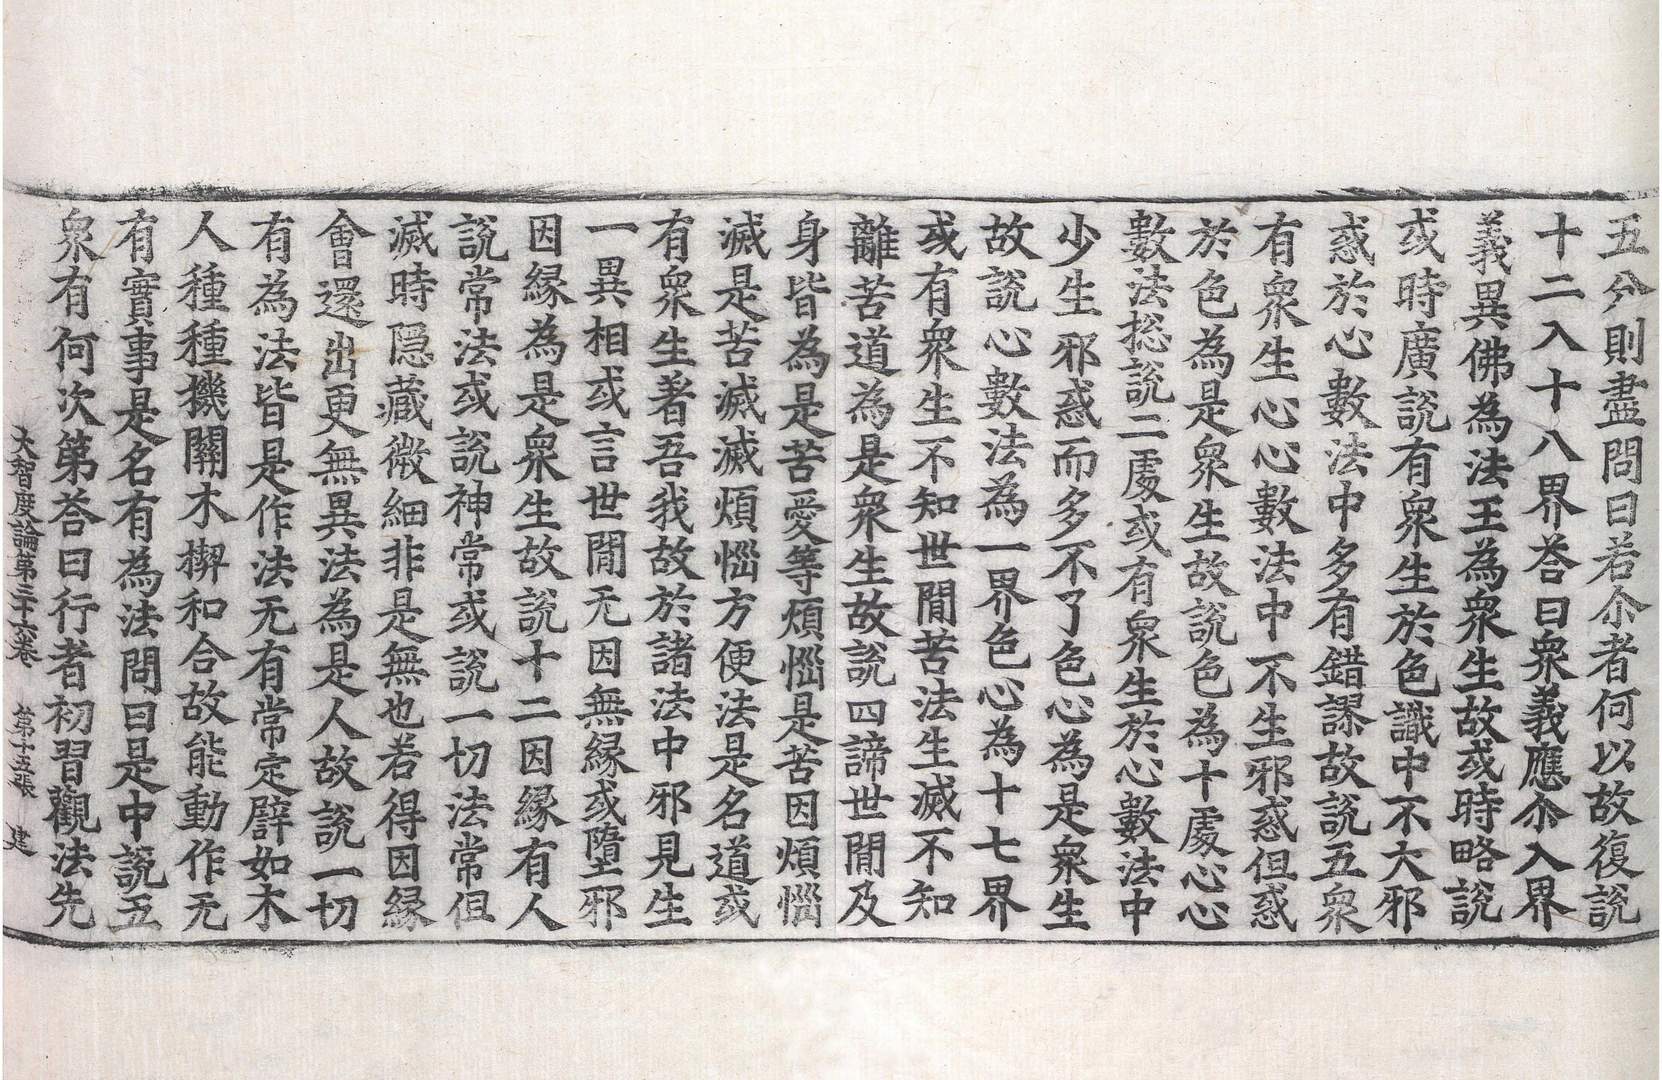 五分則盡問曰若尒者何以故復說
十二入十八界荅曰衆義應尒入界
義異佛為法王為衆生故或時略說
或時廣說有衆生於色識中不大邪
惑於心數法中多有錯謬故說五衆
有衆生心心數法中不生邪惑但惑
於色為是衆生故說色為十處心心
數法捴說二處或有衆生於心數法中
少生邪惑而多不了色心為是衆生
故說心數法為一界色心為十七界
或有衆生不知世閒苦法生滅不知
離苦道為是衆生故說四諦世閒及
身皆為是苦愛等煩惱是苦因煩惱
滅是苦滅滅煩惱方便法是名道或
有衆生著吾我故於諸法中邪見生
一異相或言世閒无因無縁或墮邪
因縁為是衆生故說十二因縁有人
說常法或說神常或說一切法常但
滅時隠藏微細非是無也若得因縁
會還出更無異法為是人故說一切
有為法皆是作法无有常定譬如木
人種種機關木楔和合故能動作无
有實事是名有為法問曰是中說五
衆有何次第荅曰行者初習觀法先
大智度論第三十六卷 第十五張 建